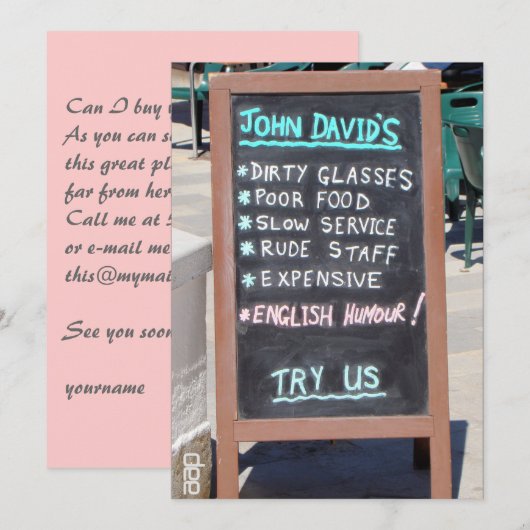 Can I buy
As you can
this great
far from
Call me at
or e-mail me
See you soon
yourname
JOHN DAVID'S
*DIRTY GLASSES
*POOR FOOD
*SLOW SERVICE
*RUDE STAFF
*EXPENSIVE
*ENGLISH HUMOUR!
TRY US